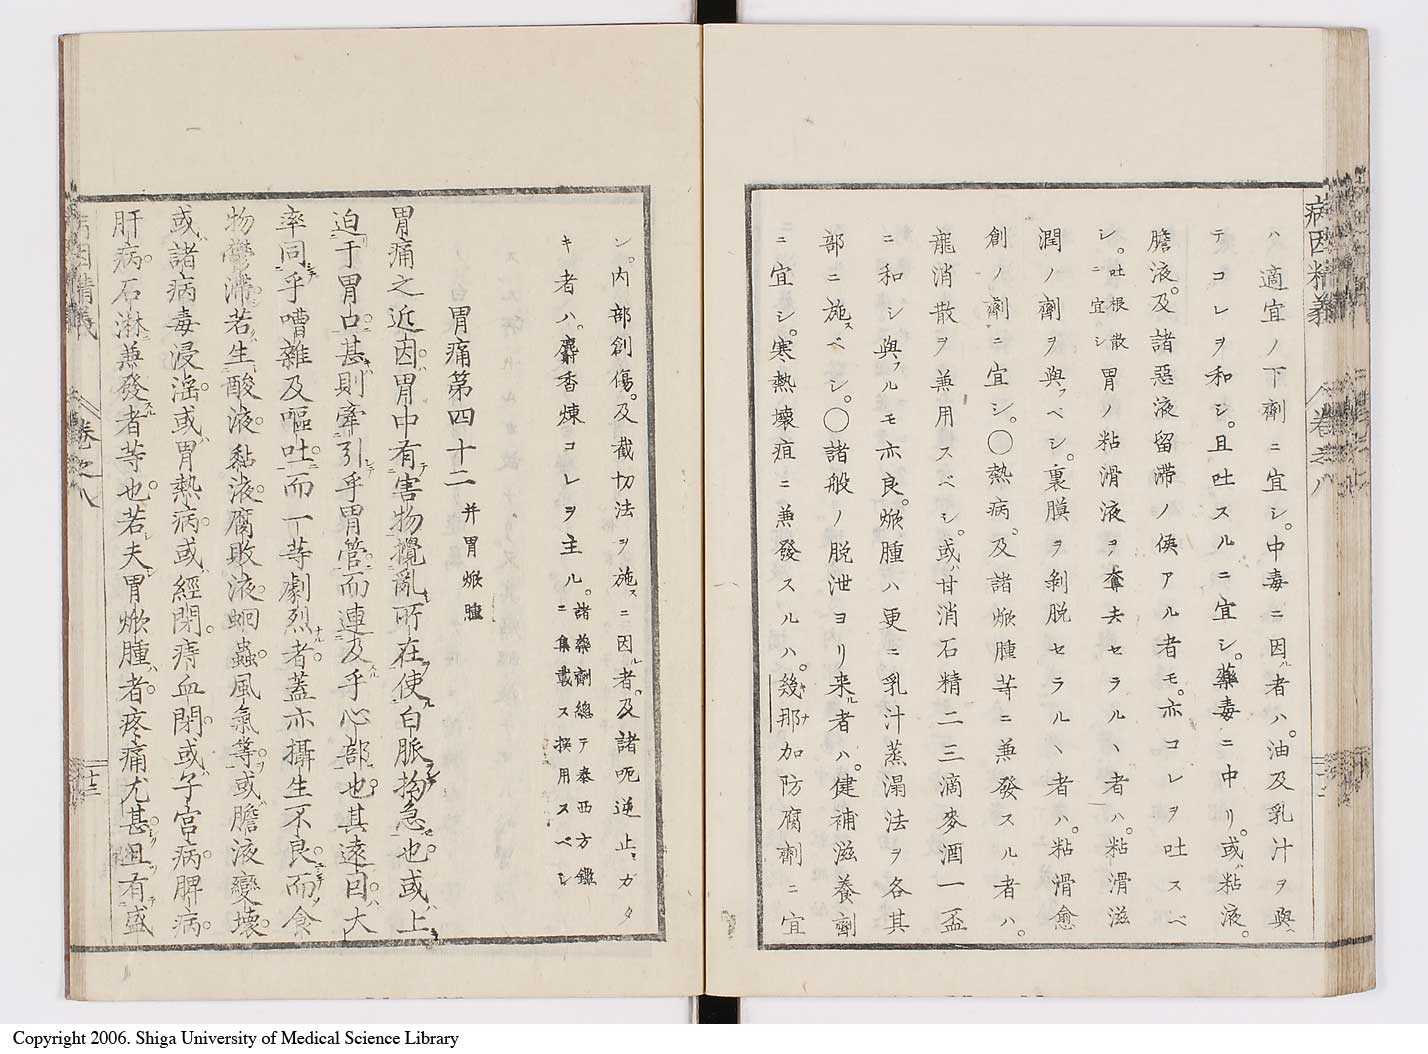 病因精義 卷之八
ハ適宜ノ下劑ニ宜シ。中毒ニ因ル者ハ。油及乳汁ヲ與ヘ
テコレヲ和シ。且吐スルニ宜シ。藥毒ニ中リ。或ハ粘液。
膽液。及諸惡液留滯ノ候アル者モ。亦コレヲ吐スベ
シ。吐根散ニ宜シ胃ノ粘滑液ヲ奪去セラルヽ者ハ。粘滑滋
潤ノ劑ヲ與フベシ。裏膜ヲ剝脱セラルヽ者ハ。粘滑愈
創ノ劑ニ宜シ。〇熱病。及諸焮腫等ニ兼發スル者ハ。
龍消散ヲ兼用スベシ。或ハ甘消石精二三滴麥酒一盃
ニ和シ與フルモ亦良。焮腫ハ更ニ乳汁蒸溻法ヲ各其
部ニ施スベシ。〇諸般ノ脱泄ヨリ来ル者ハ。健補滋養劑
ニ宜シ。寒熱壞疽ニ兼發スルハ。幾那加防腐劑ニ宜
シ。内部創傷。及截切法ヲ施スニ因ル者。及諸呃逆止ミガタ
キ者ハ。麝香煉コレヲ主ル。諸藥劑總テ泰西方鑑ニ集載ス撰用スベシ
胃痛第四十二 并胃焮腫
胃痛之近因。胃中有害物攪亂所在使白脈拘急也。或上
迫于胃口。甚則牽引乎胃管。而連及乎心部也。其遠因。大
率同乎嘈雜及嘔吐。而一等劇烈者。蓋亦攝生不良。而食
物鬱滯。若生酸液。黏液。腐敗液。蛔蟲。風氣等。或膽液變壞。
或諸病毒浸淫。或胃熱病。或經閉。痔血閉。或子宮病。脾病。
肝病。石淋兼發者等也。若夫胃焮腫者。疼痛尤甚。且有盛
病因精義 卷之八 十三
Copyright 2006. Shiga University of Medical Science Library